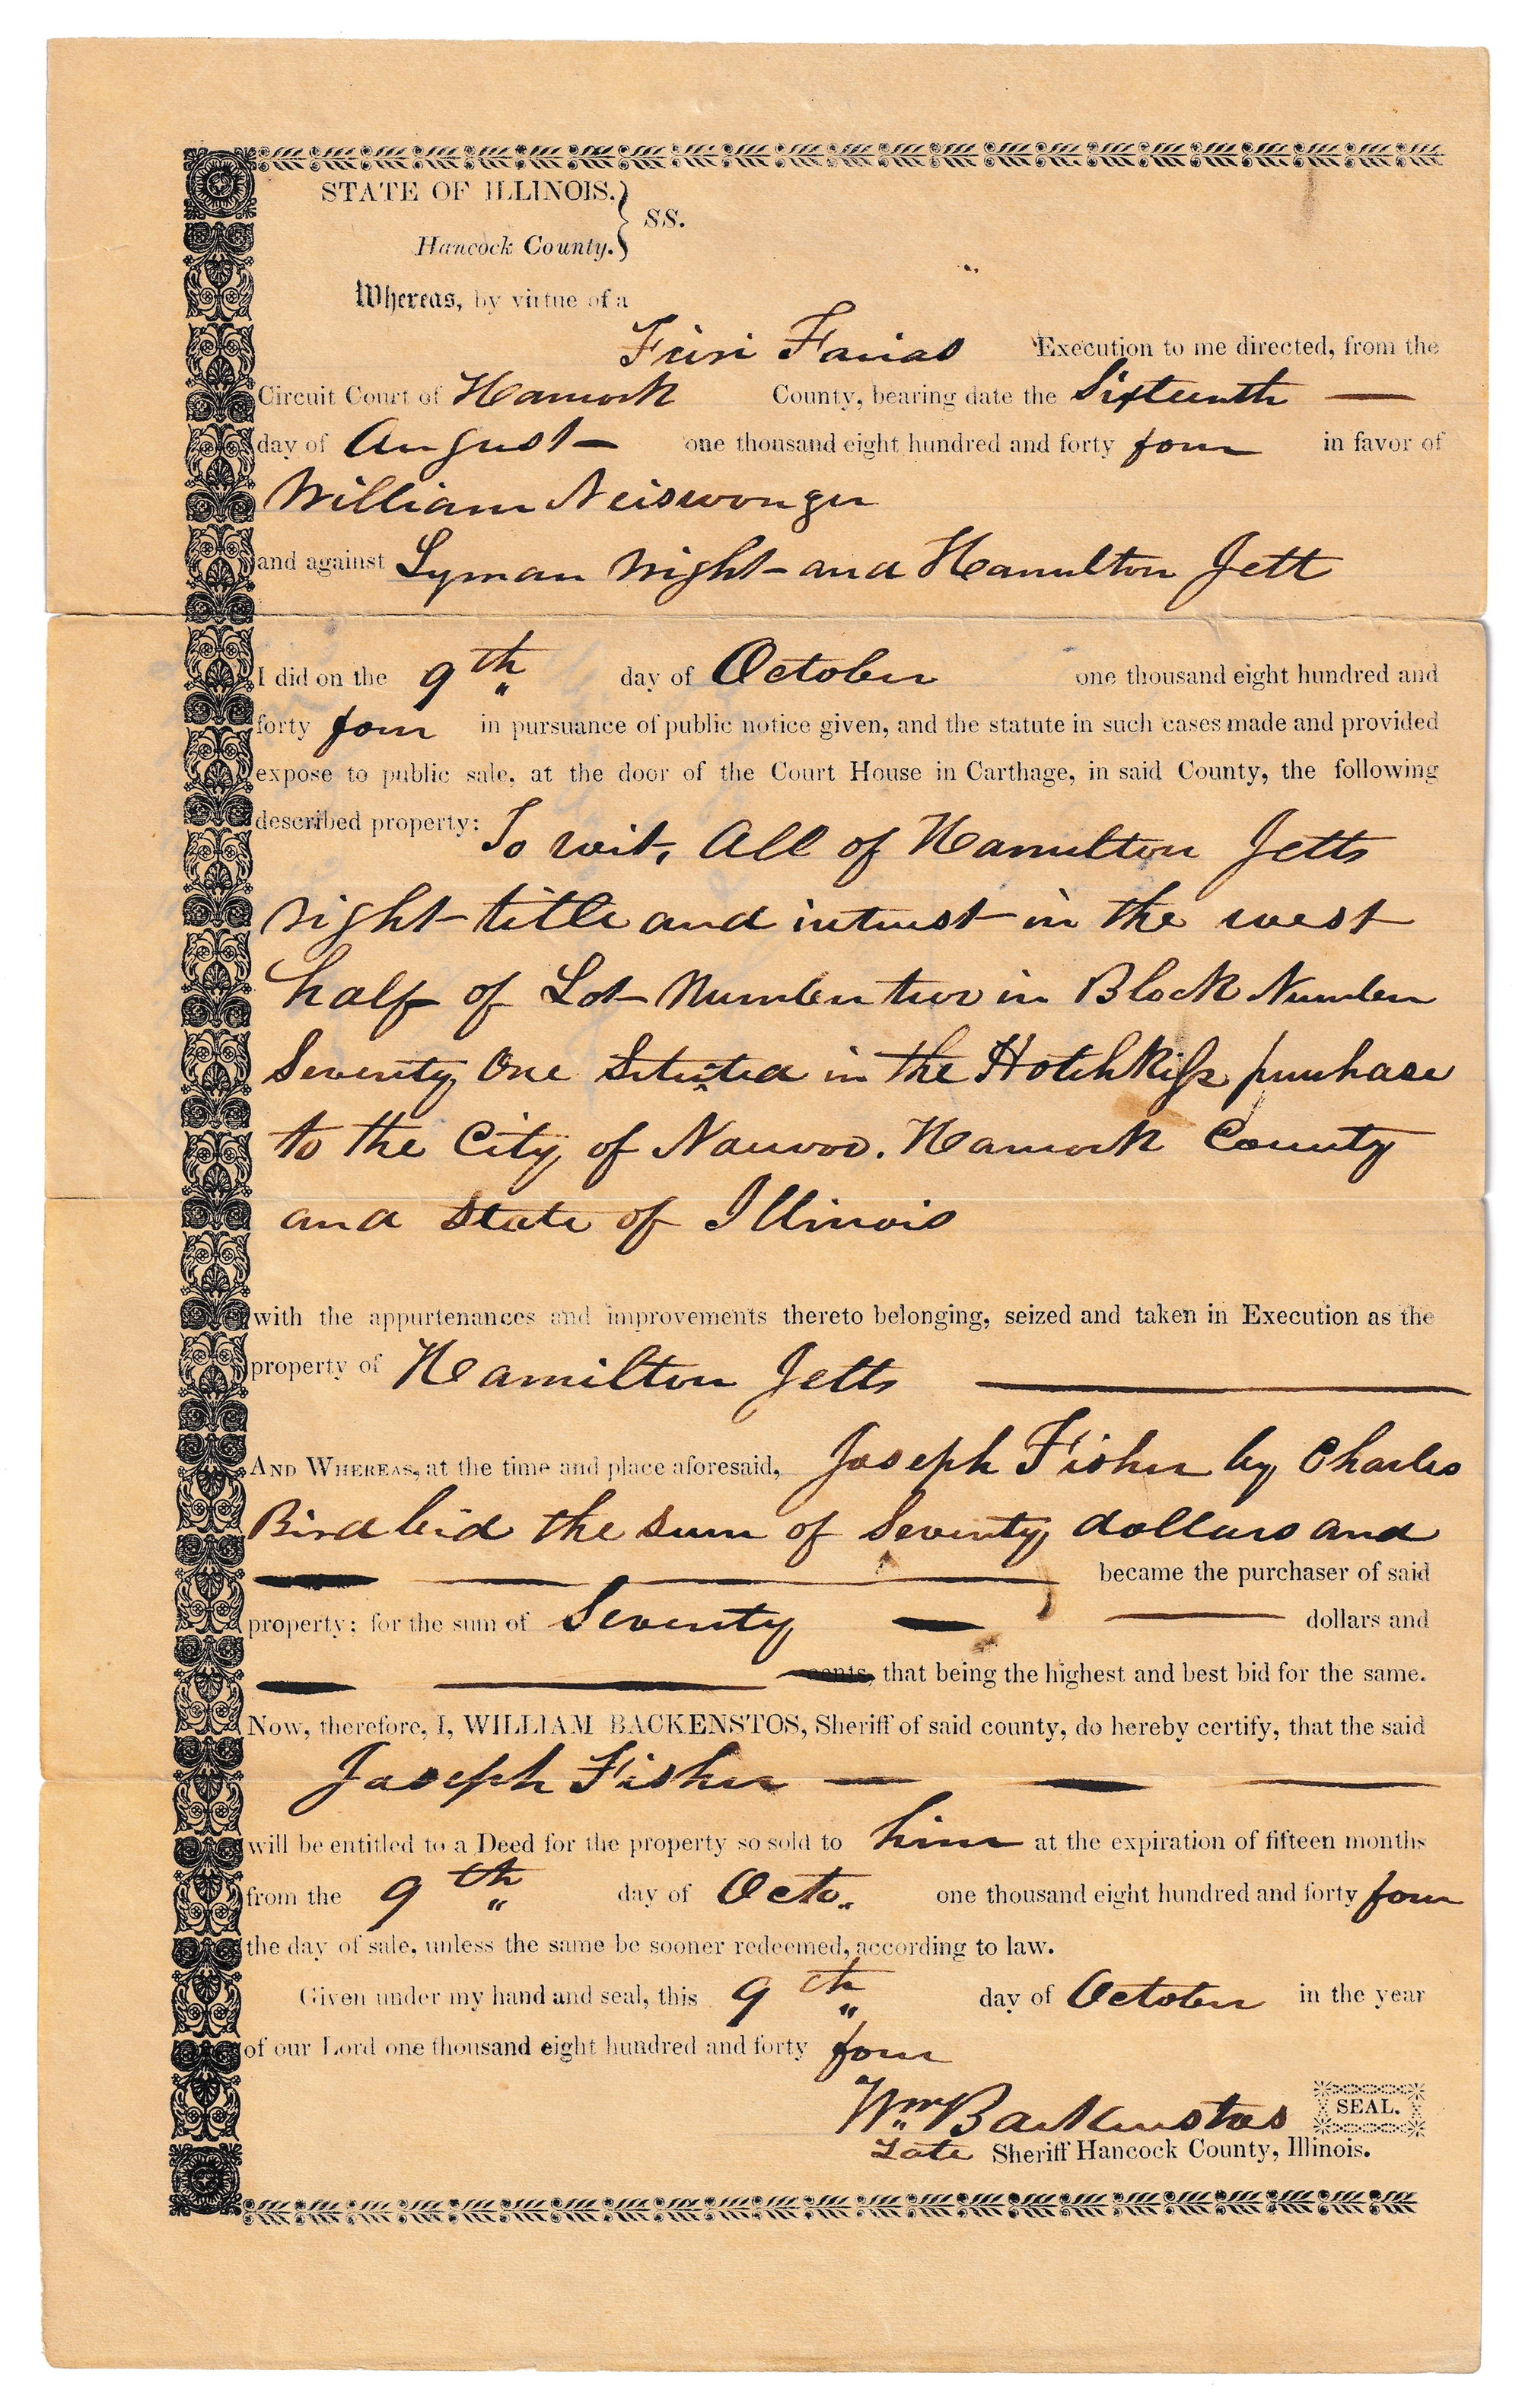 STATE OF ILLINOIS. } SS.
Hancock County.
Whereas, by virtue of a
Fieri Facias Execution to me directed, from the
Circuit Court of Hancock County, bearing date the Sixteenth —
day of August — one thousand eight hundred and forty four in favor of
William Neiswonger
and against Lyman Wight and Hamilton Jett
I did on the 9th day of October one thousand eight hundred and
forty four in pursuance of public notice given, and the statute in such cases made and provided
expose to public sale, at the door of the Court House in Carthage, in said County, the following
described property: To wit, All of Hamilton Jetts
right title and interest in the west
half of Lot Number two in Block Number
Seventy One Situated in the Hotchkiss purchase
to the City of Nauvoo. Hancock County
and State of Illinois
with the appurtenances and improvements thereto belonging, seized and taken in Execution as the
property of Hamilton Jetts —
AND WHEREAS, at the time and place aforesaid, Joseph Fisher by Charles
Bird bid the sum of Seventy dollars and
— — — became the purchaser of said
property; for the sum of Seventy — — dollars and
— — cents, that being the highest and best bid for the same.
Now, therefore, I, WILLIAM BACKENSTOS, Sheriff of said county, do hereby certify, that the said
Joseph Fisher — — —
will be entitled to a Deed for the property so sold to him at the expiration of fifteen months
from the 9th day of Octo. one thousand eight hundred and forty four
the day of sale, unless the same be sooner redeemed, according to law.
Given under my hand and seal, this 9th day of October in the year
of our Lord one thousand eight hundred and forty four
Wm Backenstos SEAL.
Late Sheriff Hancock County, Illinois.